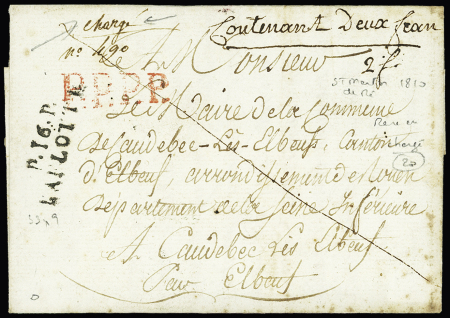 chargé
Contenant Deux fran
n°. 490
A Monsieur
2 f
P.P.P.P.
St Martin 1810
de Ré
Le Maire de la Commune
P.16.P.
de Caudebec-Lès-Elbeuf, Canton
chargé
20
d'Elbeuf, arrondissement de Rouen
Departement de la Seine Inférieure
A Caudebec Lès Elbeuf
Par Elbeuf